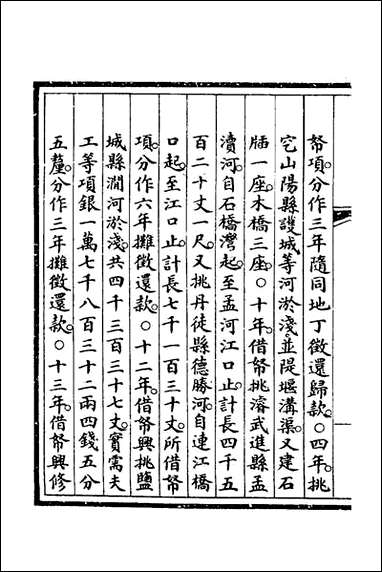 帑項分作三年隨同地丁徵還歸款○四年挑
穵山陽縣護城等河淤淺並隄堰溝渠又建石
牐一座木橋三座○十年借帑挑濬武進縣孟
瀆河自石橋灣起至孟河江口止計長四千五
百二十丈一尺又挑丹徒縣德勝河自連江橋
口起至江口止計長七千一百三十丈所借帑
項分作六年攤徵還款○十二年借帑興挑鹽
城縣澗河淤淺共四千三百三十七丈實需夫
工等項銀一萬七千八百三十二兩四錢五分
五釐分作三年攤徵還款○十三年借帑興修